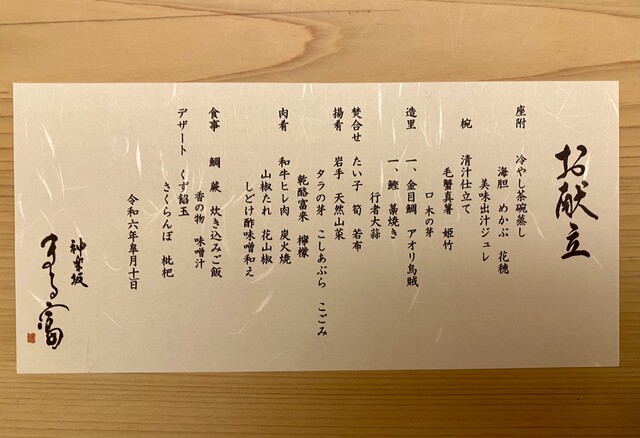 お献立
座附 冷やし茶碗蒸し
海胆 めかぶ 花穂
美味出汁ジュレ
椀 清汁仕立て
毛蟹真薯 姫竹
口 木の芽
造里 一、金目鯛 アオリ烏賊
一、鰹 藁焼き
行者大蒜
焚合せ たい子 筍 若布
揚肴 岩手 天然山菜
タラの芽 こしあぶら こごみ
乾酪富来 檸檬
肉肴 和牛ヒレ肉 炭火焼
山椒たれ 花山椒
しどけ酢味噌和え
食事 鯛 蕨 炊き込みご飯
香の物 味噌汁
デザート くず餡玉
さくらんぼ 枇杷
令和六年皐月十一日
神楽坂